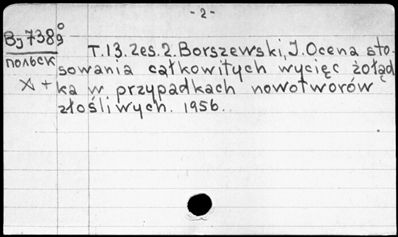 - 2 -
Bj 7389°
польск
X +
T.13. zes. 2. Borszewski, J. Ocena sto-
sowania całkowitych wycięć żołąd
ka w przypadkach nowotworów
złośliwych. 1956.